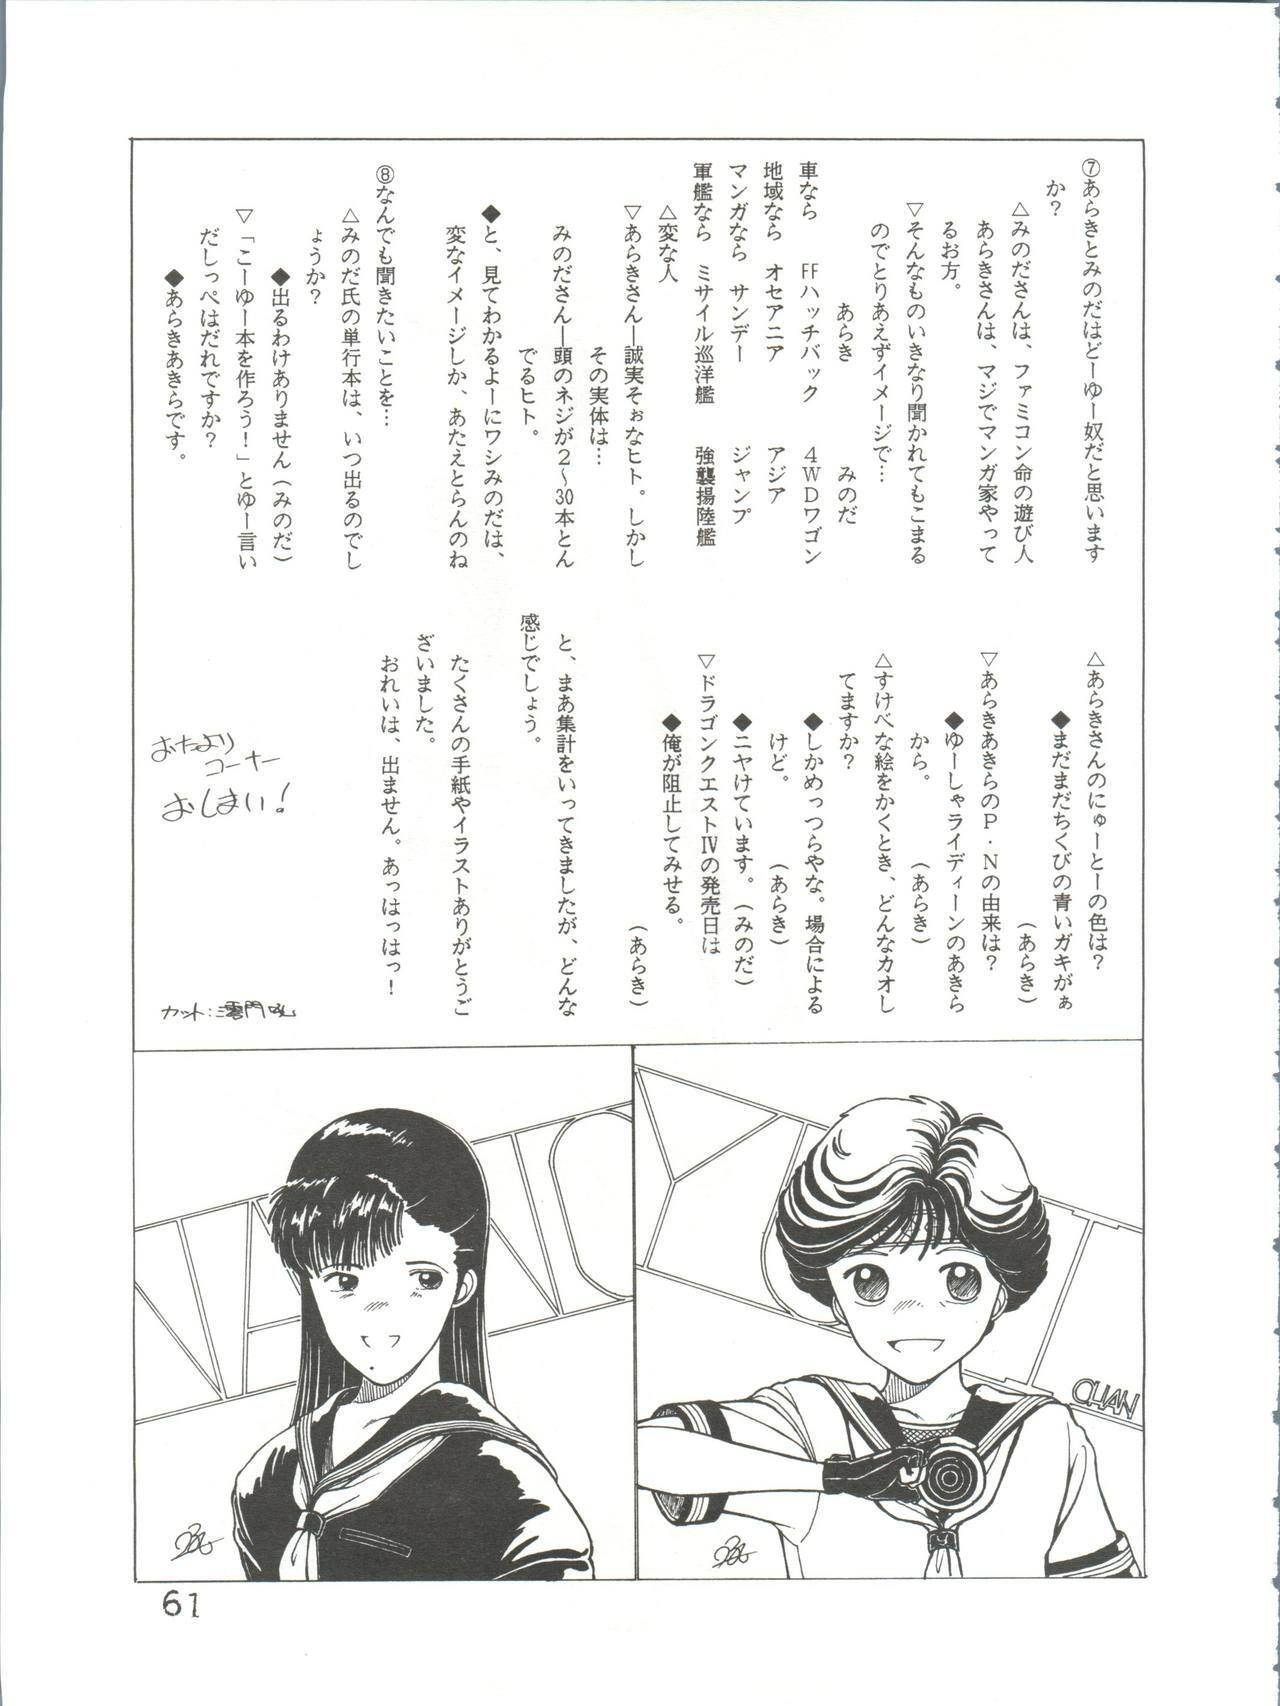 ⑦あらきとみのだはどーゆー奴だと思います
か？
△みのださんは、ファミコン命の遊び人
あらきさんは、マジでマンガ家やって
るお方。
▽そんなものいきなり聞かれてもこまる
のでとりあえずイメージで…
あらき　みのだ
車なら　FFハッチバック　４ＷＤワゴン
地域なら　オセアニア　アジア
マンガなら　サンデー　ジャンプ
軍艦なら　ミサイル巡洋艦　強襲揚陸艦
△変な人
▽あらきさん―誠実そぉなヒト。しかし
その実体は…
みのださん―頭のネジが２～30本とん
でるヒト。
◆と、見てわかるよーにワシみのだは、
変なイメージしか、あたえとらんのね
⑧なんでも聞きたいことを…
△みのだ氏の単行本は、いつ出るのでし
ょうか？
◆出るわけありません（みのだ）
▽「こーゆー本を作ろう！」とゆー言い
だしっぺはだれですか？
◆あらきあきらです。
△あらきさんのにゅーとーの色は？
◆まだまだちくびの青いガキがぁ
（あらき）
▽あらきあきらのＰ・Ｎの由来は？
◆ゆーしゃライディーンのあきら
から。　（あらき）
△すけべな絵をかくとき、どんなカオし
てますか？
◆しかめっつらやな。場合による
けど。　（あらき）
◆ニヤけています。（みのだ）
▽ドラゴンクエストⅣの発売日は
◆俺が阻止してみせる。
（あらき）
と、まあ集計をいってきましたが、どんな
感じでしょう。
たくさんの手紙やイラストありがとうご
ざいました。
おれいは、出ません。あっはっはっ！
おたより
コーナー
おしまい！
カット：澪門
CHAN
61